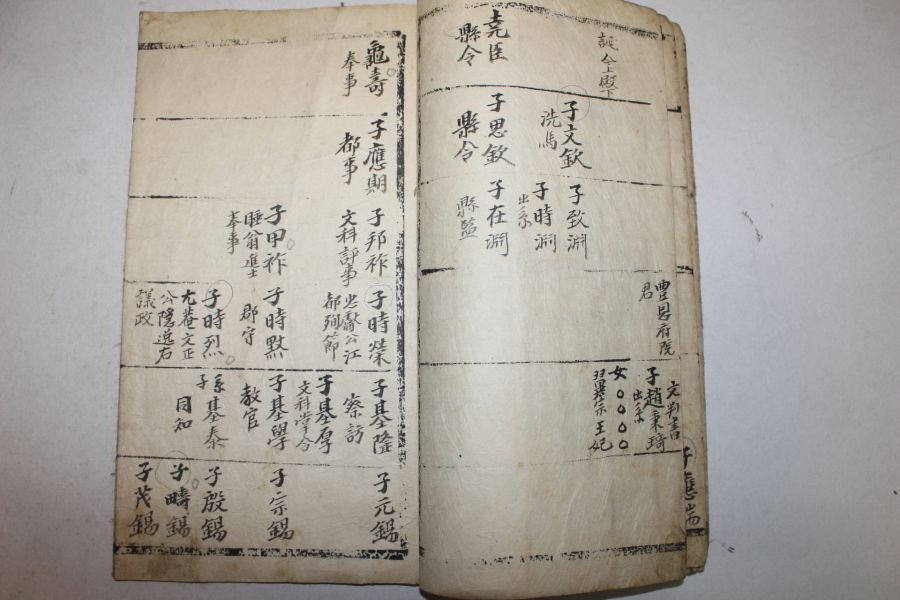 誕今上殿下
堯臣
縣令
子文欽
洗馬
子思欽
縣令
子致淵
子時淵
出系
子在淵
縣監
豊恩府院
君
文判書
子趙秉琦
出系
女○○○○
翼宗王妃
子應
龜壽
奉事
子應期
都事
子邦祚
文科評事
子甲祚
睡翁進士
奉事
子時榮
忠 公江
都殉節
子時默
郡守
子時烈
尤菴文正
公隱逸右
議政
子基隆
察訪
子基厚
文科掌令
子基學
敎官
系子基泰
同知
子元錫
子宗錫
子殷錫
子疇錫
子茂錫